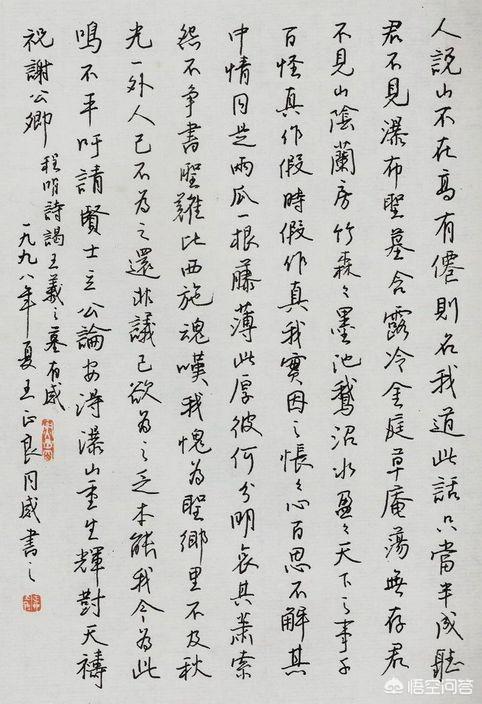 人說山不在高有僊則名我道此話只當半成聽
君不見瀑布聖墓含露冷金庭草庵蕩無存君
不見山陰蘭房竹森々墨池鵝沼水盈々天下之事千
百怪真作假時假作真我實因之悵々心百思不解其
中情同是兩瓜一根藤薄此厚彼何分明哀其蕭索
怨不争書聖難比西施魂嘆我愧為聖鄉里不及秋
光一外人己不為之還非議己欲為之乏本能我今為此
鳴不平吁請賢士立公論安得瀑山重生輝對天禱
祝謝公卿
程明詩謁王羲之墓有感
一九九八年夏王正良同感書之
悟空问答